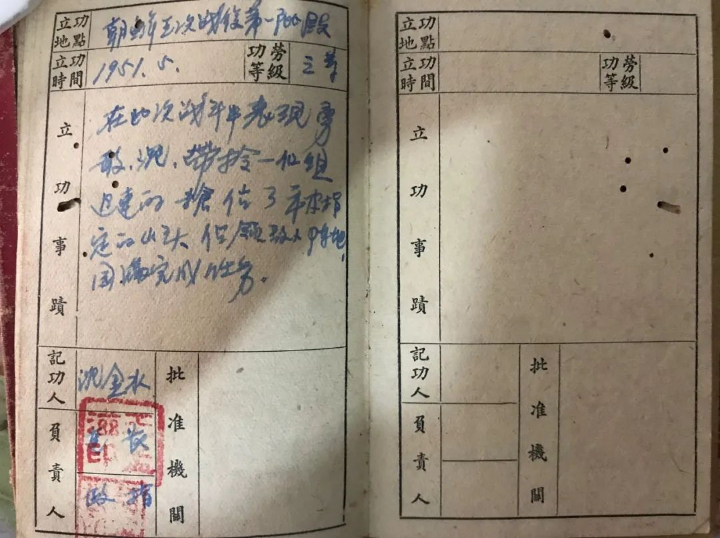 立功地點 朝鮮五次战役第一阶段
立功時間 1951.5. 功勞等級 三等
立功事蹟
在此次战斗中表现勇
敢、沉、带捡一位组
迅速的 抢佔了
定的山头 佔领敌人阵地,
圆满完成任务.
記功人 沈金水
負責人
連长
政指
批准機關
立功地點
立功時間 功勞等級
立功事蹟
記功人
負責人
批准機關